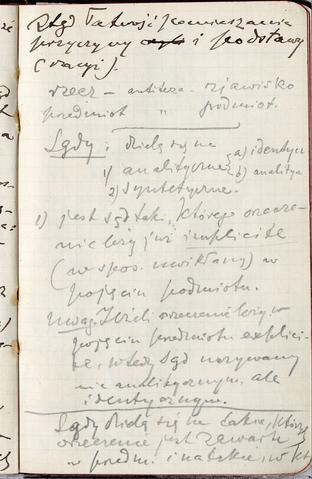 Stąd łatwość pomieszania
przyczyny i podstawy
(racyi).
rzecz – antiteza – zjawisko
przedmiot " podmiot.
Sądy: dzielą się na
1) analityczne a) identycz
b) analitycz
2) syntetyczne.
1) jest sąd taki, którego orzecze-
nie leży już implicite
(w spos. uwikłany) w
pojęciu podmiotu.
Uwaga: Jeżeli orzeczenie leży w
pojęciu przedmiotu explici-
te, wtedy sąd nazywamy
nie analitycznym, ale
identycznym.
Sądy dzielą się na takie, których
orzeczenie jest zawarte
w przedm. i na takie, w kt